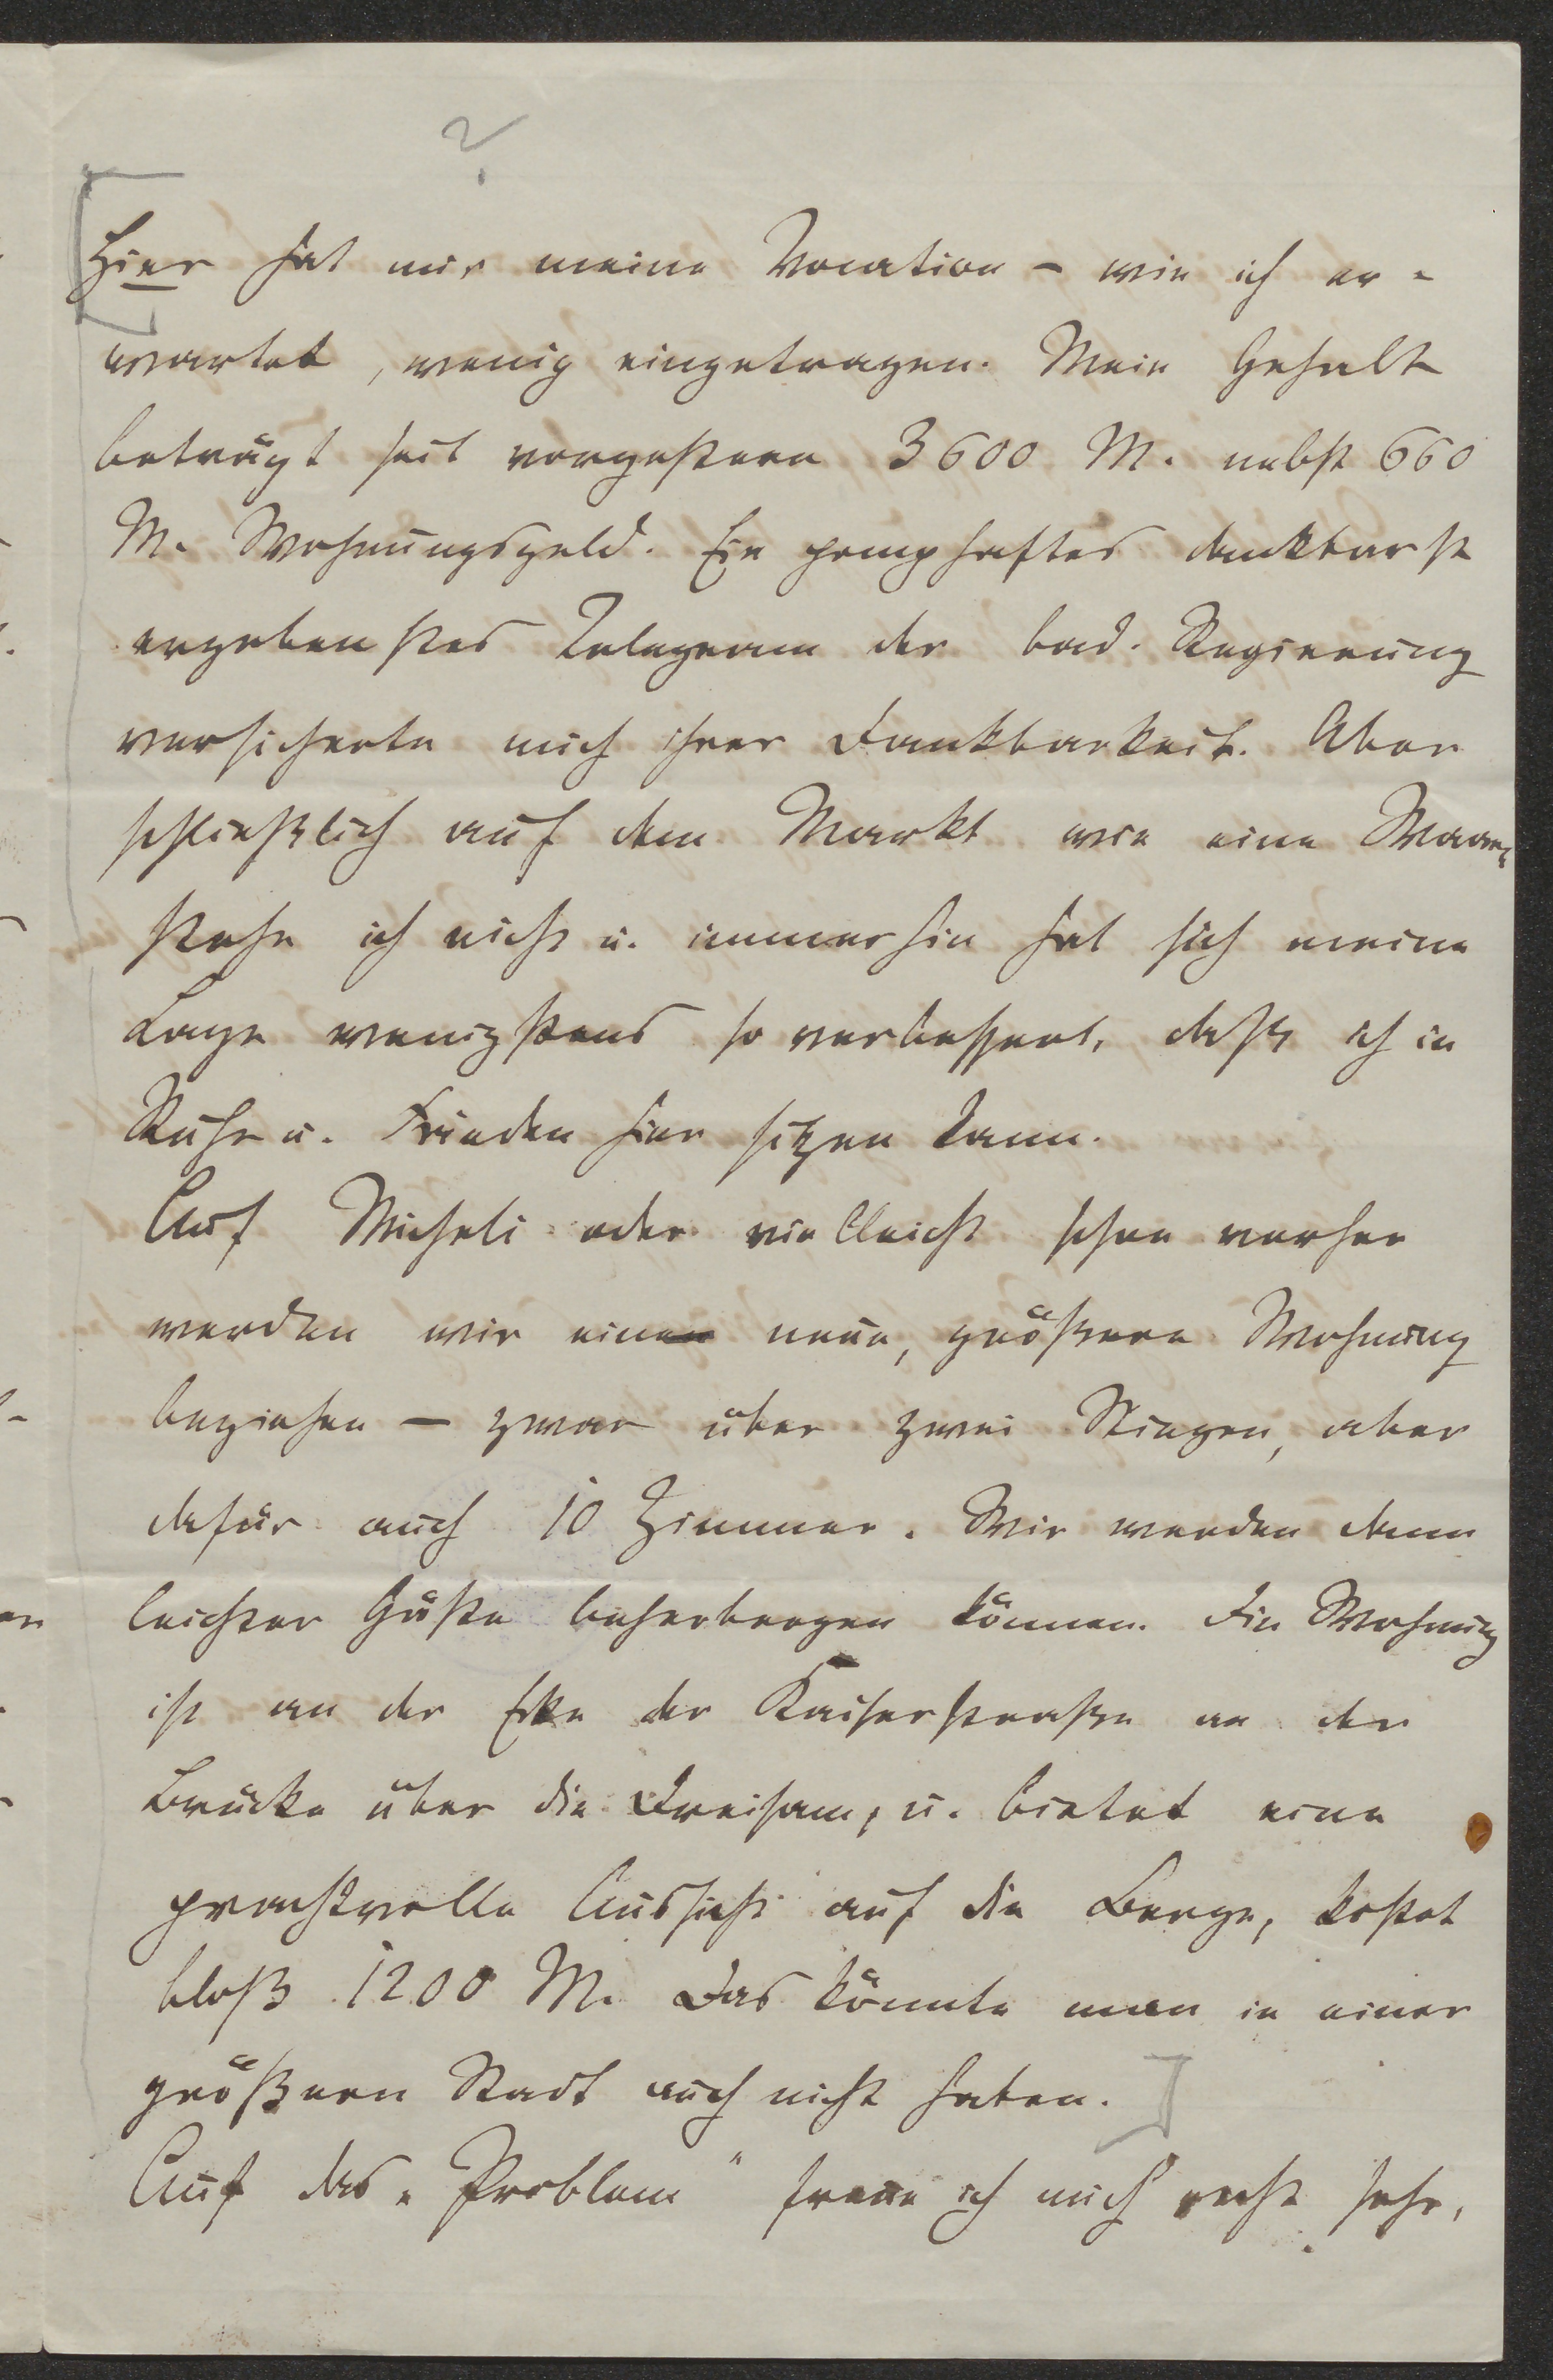 ?
[Hier hat mir meine Vocation – wie ich er-
wartet, wenig eingetragen. Mein Gehalt
beträgt seit vorgestern 3600 M. nebst 660
M. Wohnungsgeld. Ein pomphaftes dankbarst
ergebenstes Telegram der bad. Regierung
versicherte mich ihrer Dankbarkeit. Aber
schließlich auf dem Markt wie eine Waare
stehe ich nicht u. immerhin hat sich meine
Lage wenigstens so verbessert, daß ich in
Ruhe u. Frieden hier sitzen kann.
Auf Micheli oder vielleicht schon vorher
werden wir eine neue, größere Wohnung
beziehen – zwar über zwei Stiegen, aber
dafür auch 10 Zimmer. Wir werden dann
leichter Gäste beherbergen können. Die Wohnung
ist an der Ecke der Kaiserstraße an der
Brücke über die Dreisam, u. bietet eine
prachtvolle Aussicht auf die Berge, kostet
bloß 1200 M. Das könnte man in einer
größern Stadt auch nicht haben.]
Auf das „Problem" freue ich mich recht sehr,